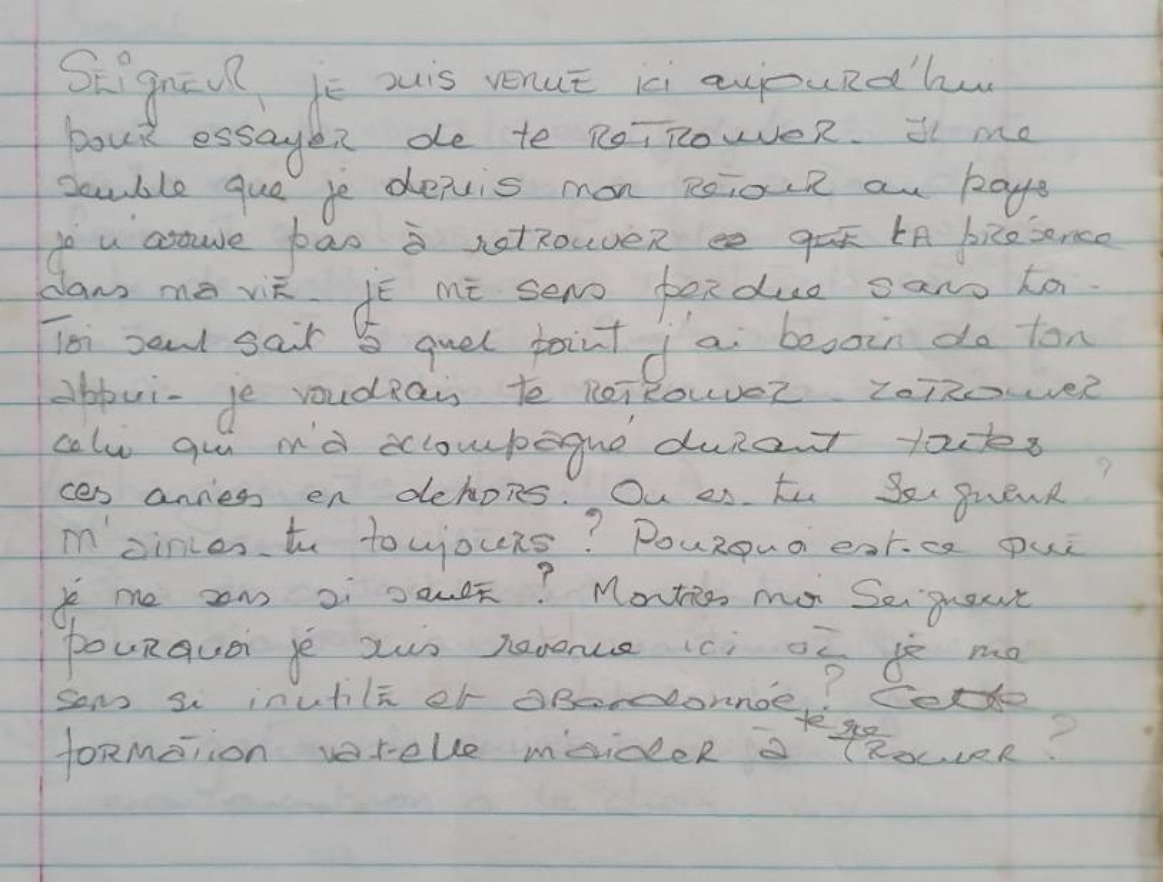 Seigneur, je suis venue ici aujourd'hui
pour essayer de te retrouver. Il me
semble que je depuis mon retour au pays
je n arrive pas à retrouver ta présence
dans ma vie. je me sens perdue sans toi.
Toi seul sait à quel point j'ai besoin de ton
appui. je voudrais te retrouver. retrouver
celui qui m'a accompagné durant toutes
ces années en dehors. Ou es-tu Seigneur ?
m'aimes-tu toujours ? Pourquoi est-ce que
je me sens si seule ? Montres moi Seigneur
pourquoi je suis revenue ici où je me
sens si inutile et abandonnée ? Cette
formation va-t-elle m'aider à te retrouver ?